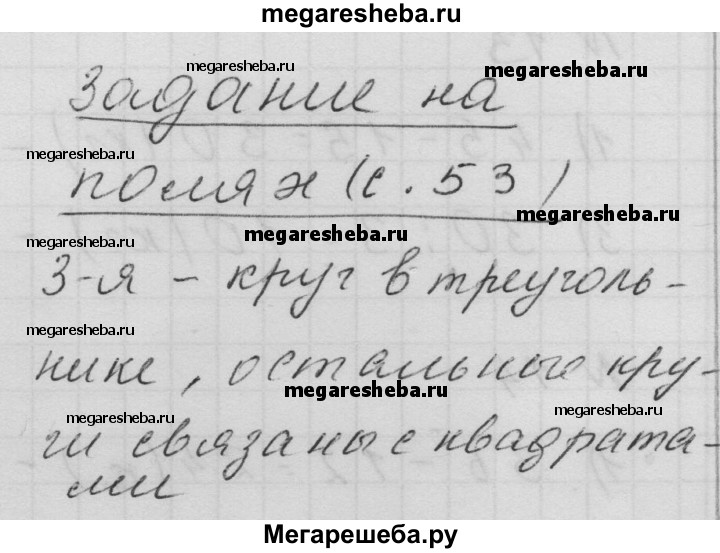 megaresheba.ru
megaresheba.ru
megaresheba.ru
Задание на
megaresheba.ru
полях (с. 53)
megaresheba.ru
megaresheba.ru
megaresheba.ru
3-я - круг в треуголь-
megaresheba.ru
нике, остальные кру-
megaresheba.ru
megaresheba.ru
megaresheba.ru
ги связаны с квадрата-
ми
megaresheba.ru
Мегарешеба.ру